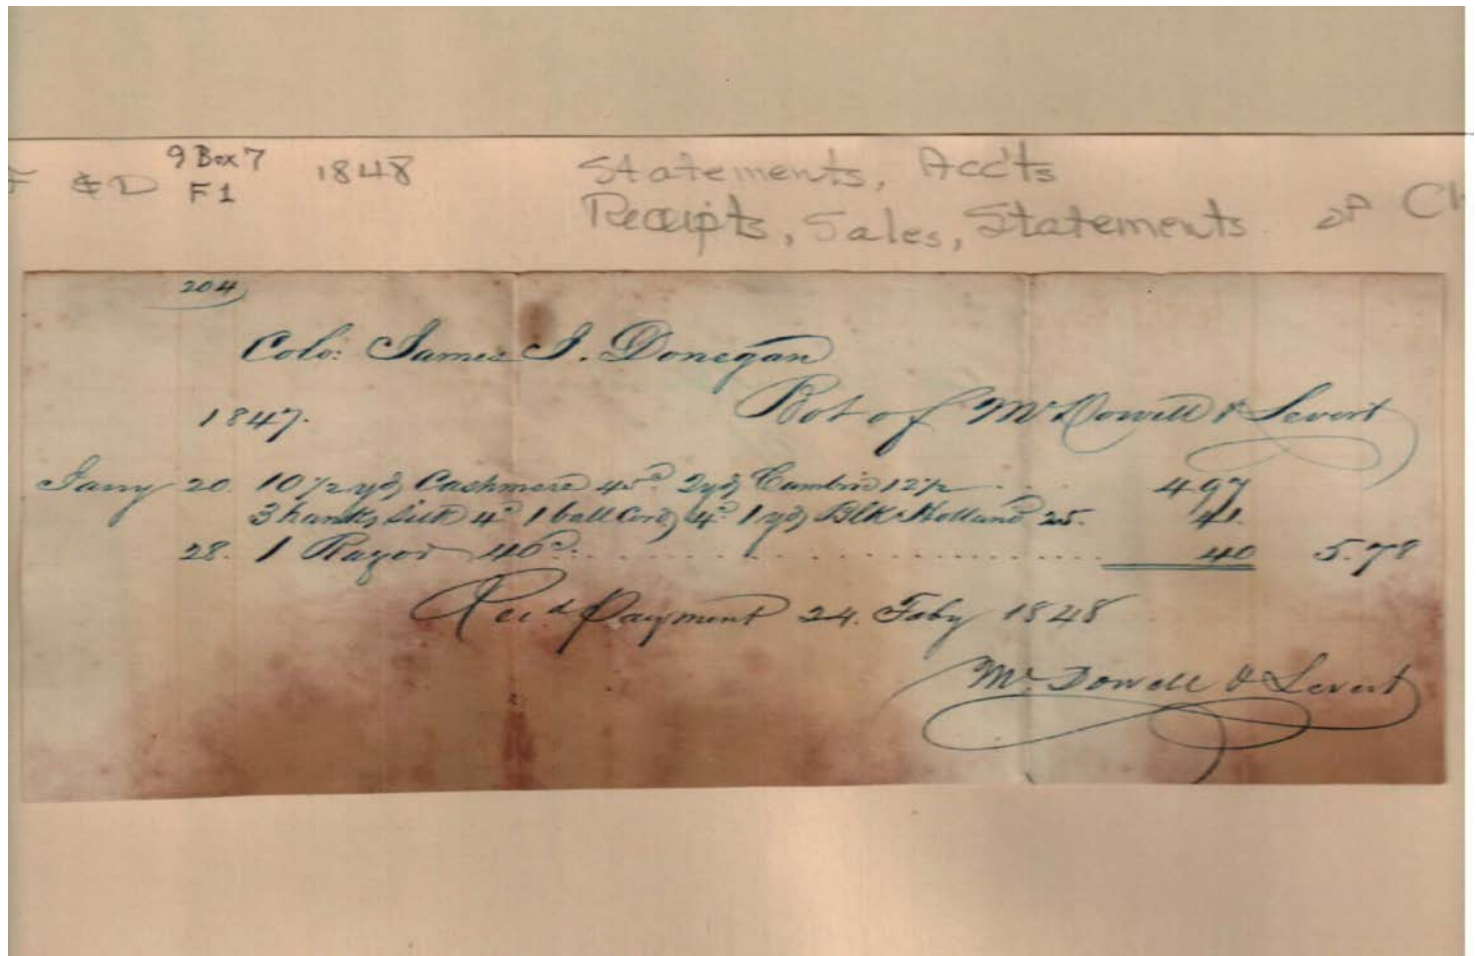 9 Box 7
F & D F1 1848 Statements, Acc'ts
Receipts, Sales, Statements
204
Colo: James J. Donegan
1847. Bot of McDowell & Levert
Jany 20. 10 1/2 yds Cashmere 45c 2 yds Cambric 12 1/2 . . . 4 97
3 hanks silk 4c 1 ball Cord, 4c 1 yds Blk Holland 25. 41.
28. 1 Razor 40c. . . . . . . . . . . . . . . . . . . . 40 5.78
Recd Payment 24. Feby 1848
McDowell & Levert